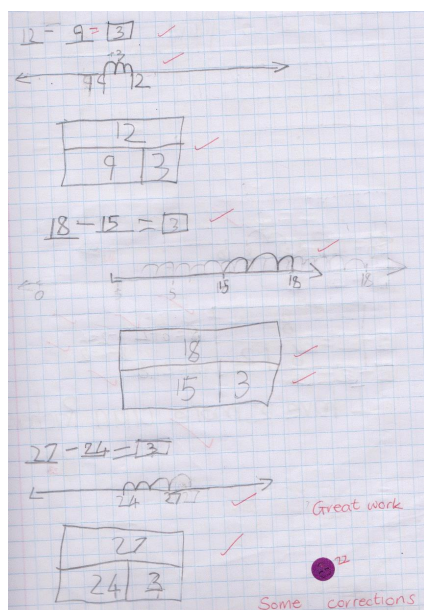 12 - 9 = 3
+3
9 12
12
9 3
18 - 15 = 3
0 5 15 18 18
18
15 3
27 - 24 = 3
24 27
27
24 3
Great work
Some corrections